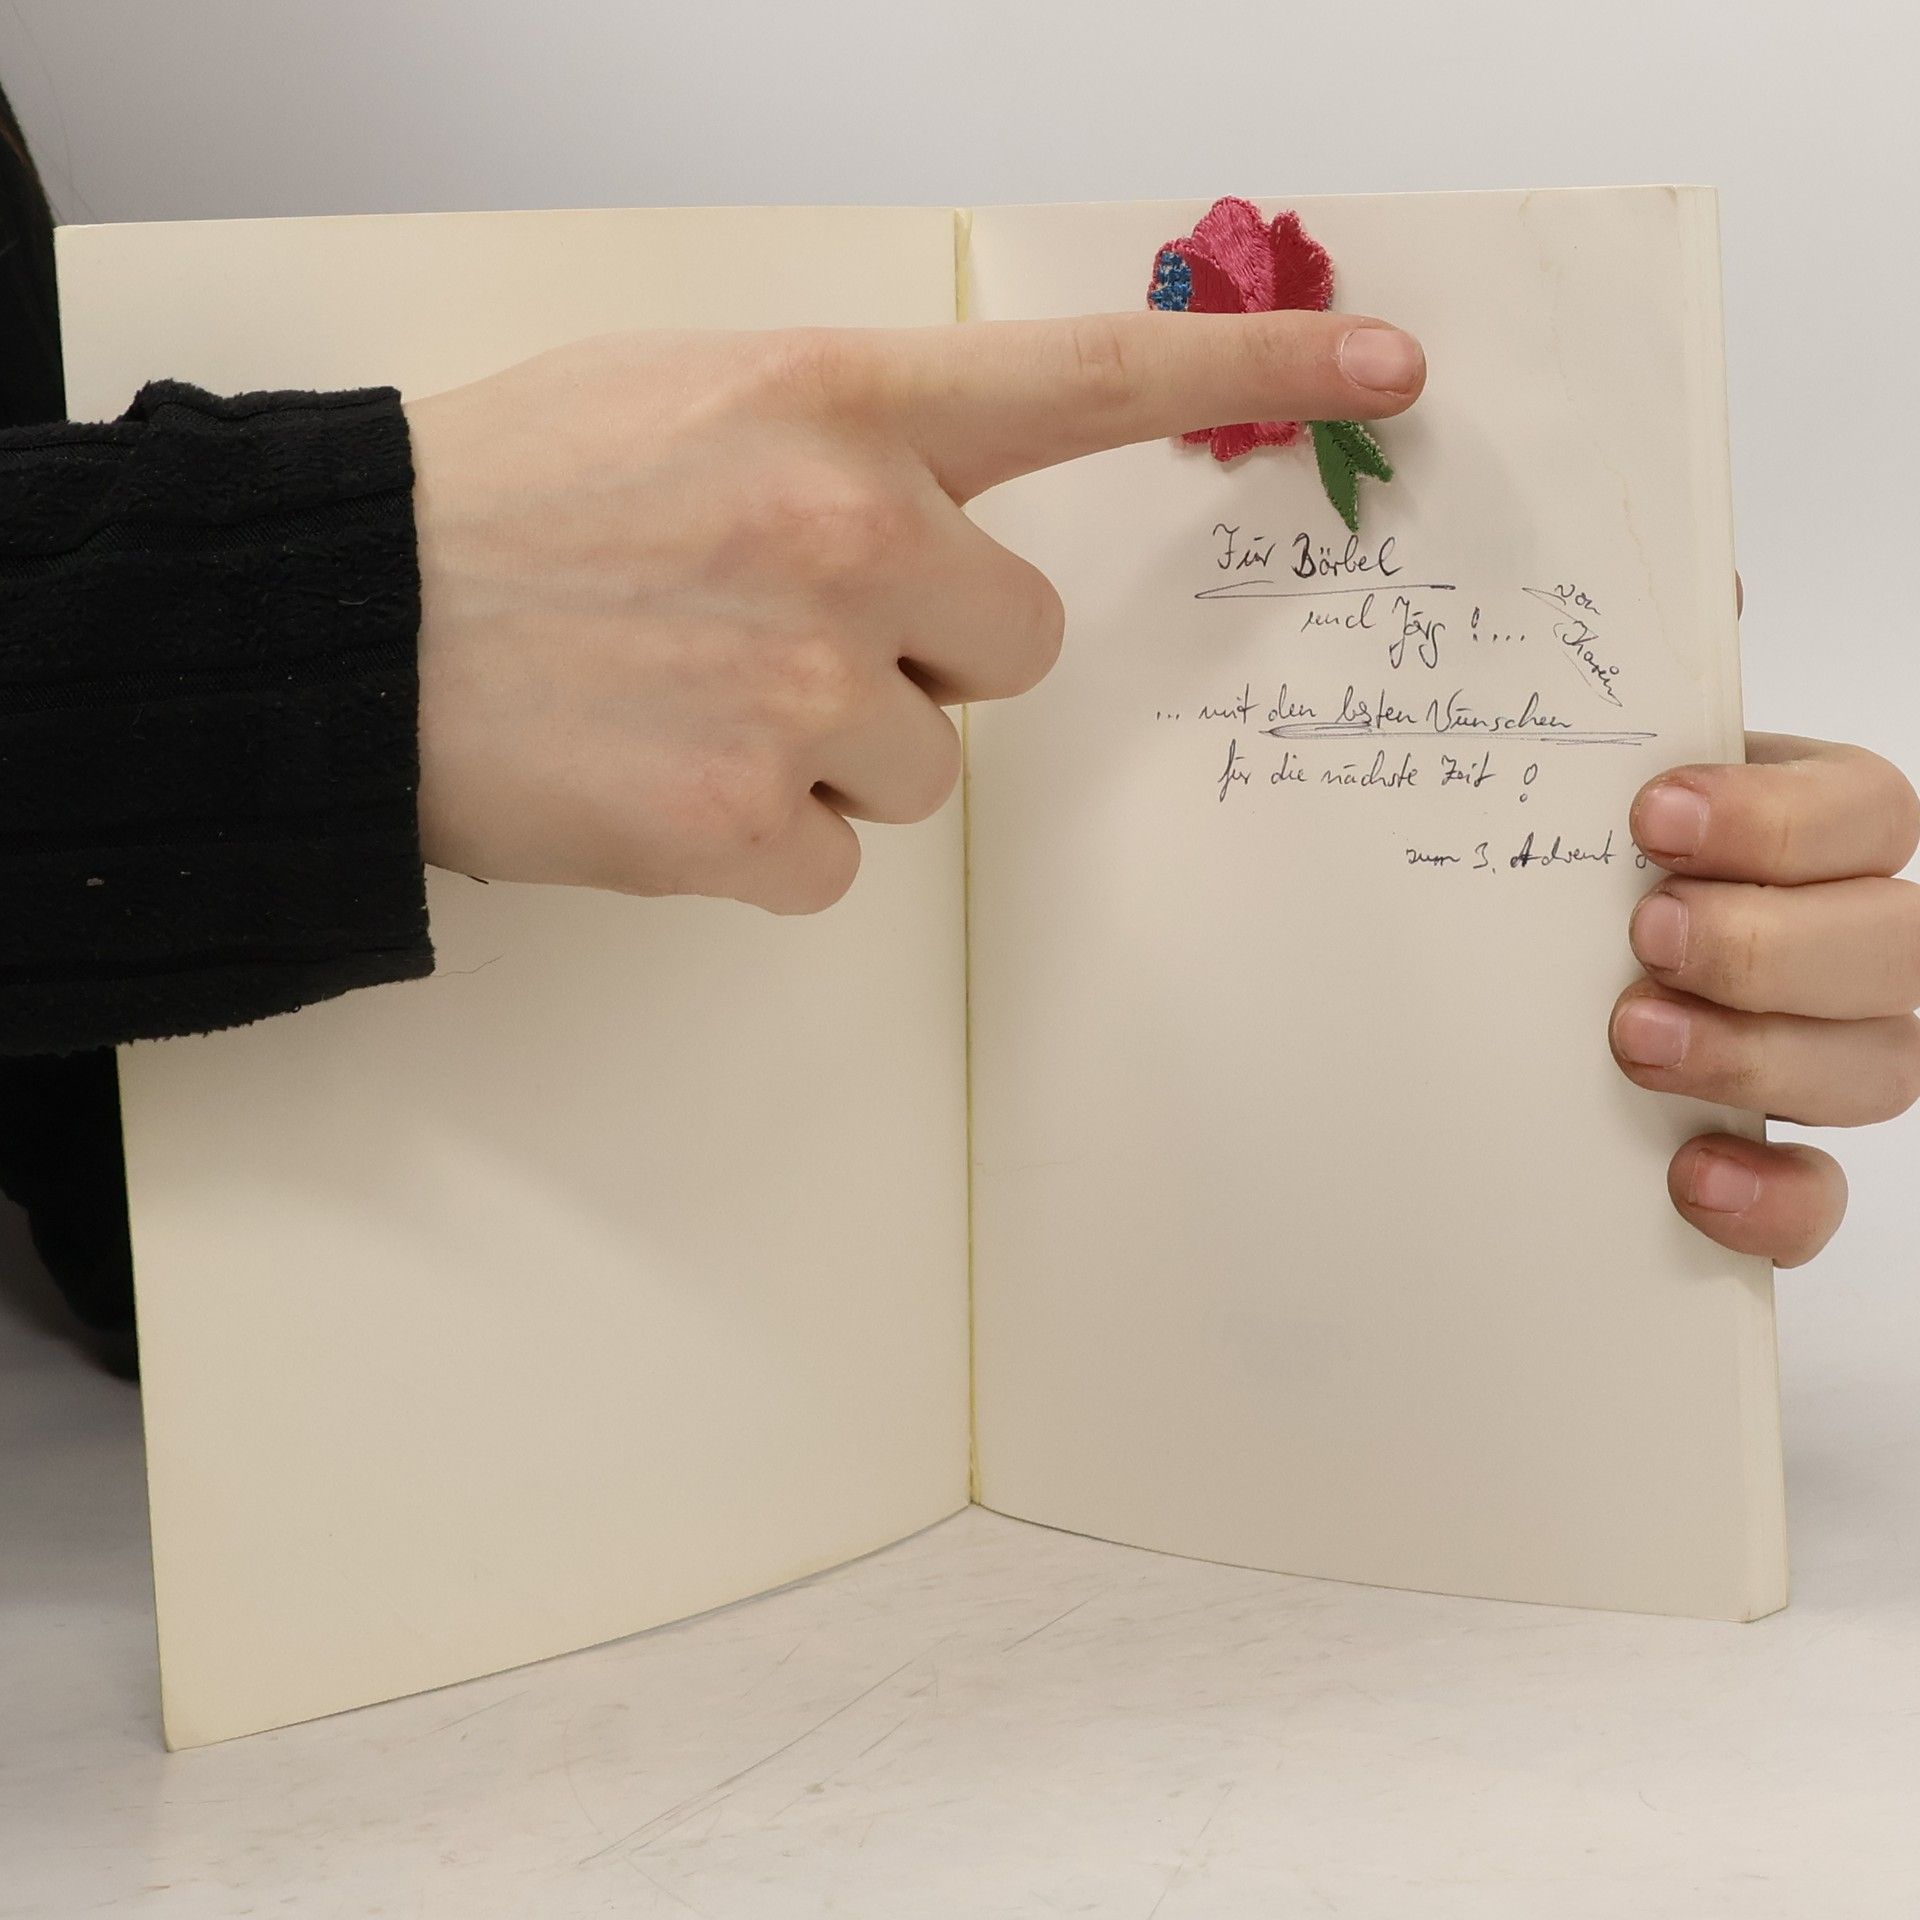 Für Bärbel
und Jörg !...
von
Karin
... mit den besten Wünschen
für die nächste Zeit !
zum 3. Advent